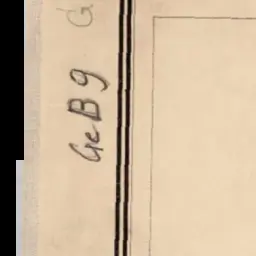 GeB 9
G